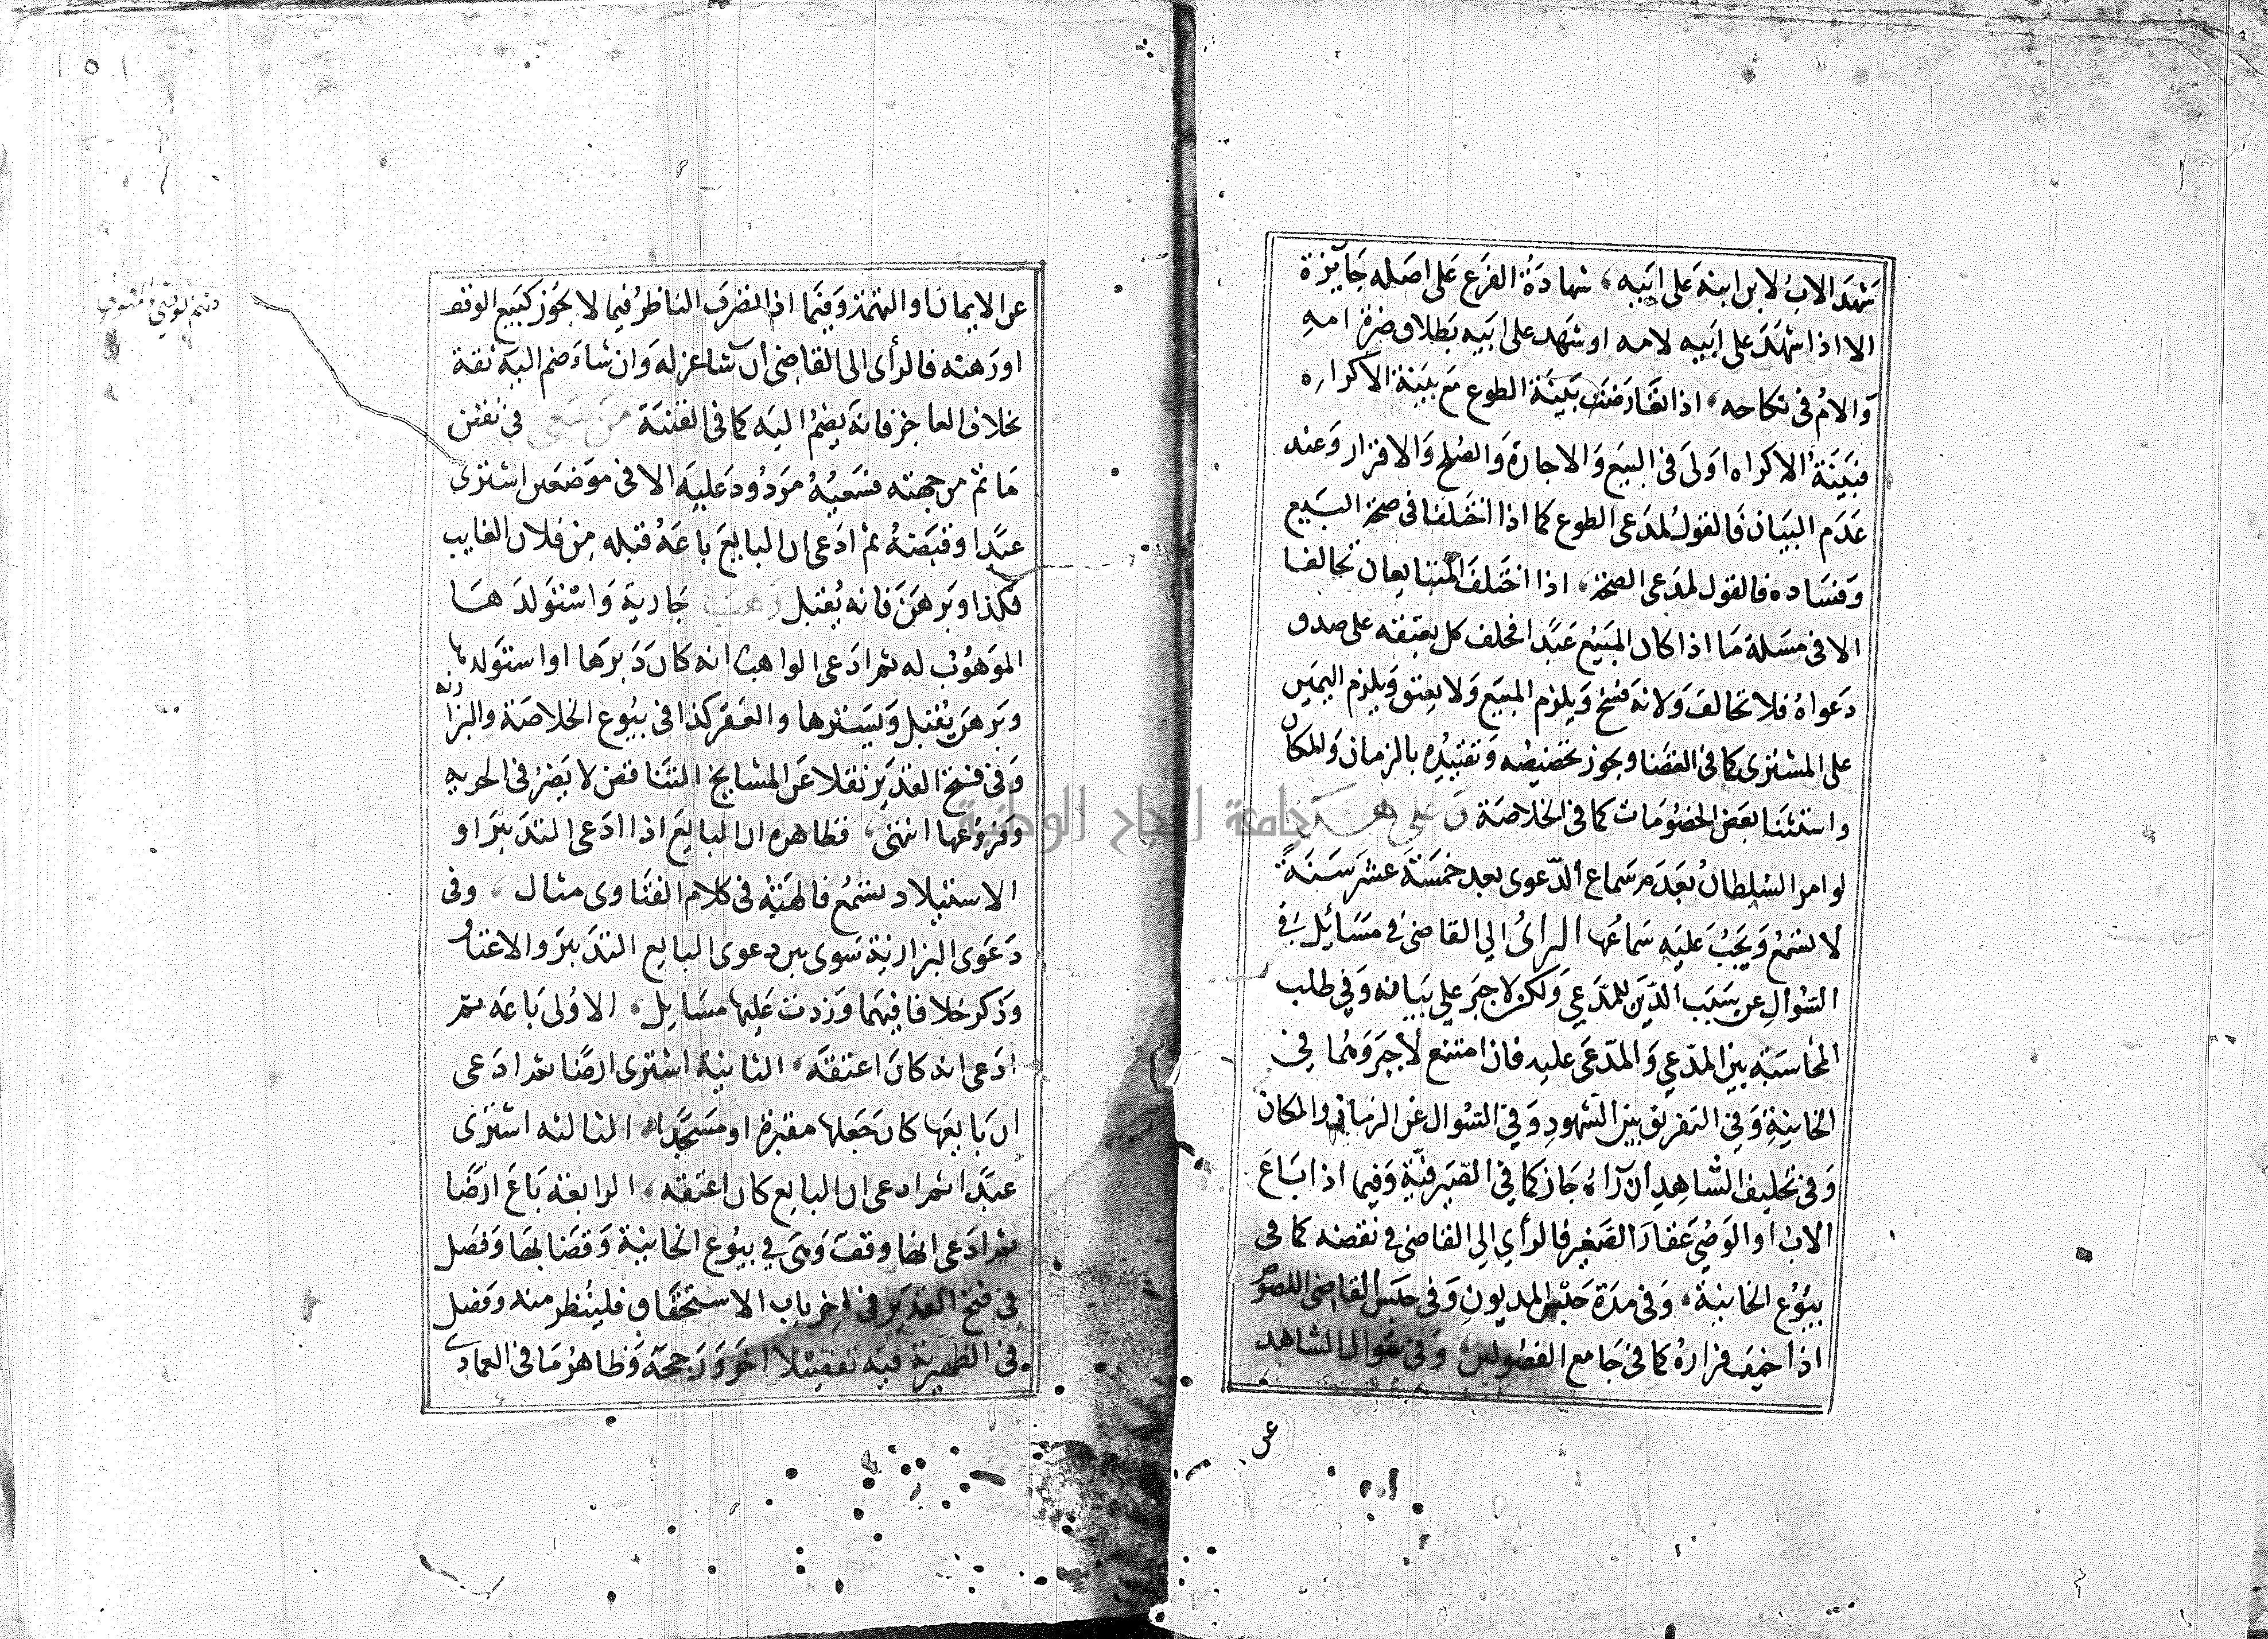 شهد الاب لابن ابنه على ابيه، شهادة الفرع على اصله جايزة
الا اذا شهد على ابيه لامه او شهد على ابيه بطلاق ضرة امه
والام فى نكاحه، اذا تعارضت بينة الطوع مع بينة الاكراه
فبينة الاكراه اولى فى البيع والاجارة والصلح والاقرار وعند
عدم البيان فالقول لمدعى الطوع كما اذا اختلفا فى صحة البيع
وفساده فالقول لمدعى الصحة، اذا اختلف المتبايعان تحالفا
الا فى مسلة ما اذا كان المبيع عبدا فحلف كل بعتقه على صدق
دعواه فلا تحالف ولا نه فسخ ويلزم المبيع ولا يعتق ويلزم اليمين
على المشترى كما فى القضا ويجوز تخصيصه وتقييده بالزمان والمكان
واستثنا بعض الخصومات كما فى الخلاصة
لو امر السلطان بعدم سماع الدعوى بعد خمسة عشر سنة
لا تسمع ويجب عليه سماعها الراى الى القاضى فى مسائل فى
السؤال عن سبب الدين للمدعي ولكن لا جبر علي بيانه وفي طلب
المحاسبة بين المدعي والمدعى عليه فان امتنع لا جبر وهما في
الخانية وفي التفريق بين الشهود وفي السؤال عن الزمان والمكان
وفى تحليف الشاهد ان رآه جاز كما في الصيرفية وفيما اذا باع
الاب او الوصي عقار الصغير فالرأي الي القاضى فى نقضه كما فى
بيوع الخانية، وفى مدة حبس المديون وفى حبس القاضى اللصوص
اذا خيف فراره كما فى جامع الفصولين، وفى سوال الشاهد
عن
عن الايمان او التهمة وفيما اذا تصرف الناظر فيما لا يجوز كبيع الوقف
او رهنه فالرأى الى القاضى ان شا عزله وان شاء ضم اليه ثقة
بخلاف العاجز فانه يضم اليه كما فى القنية من سعى فى نقض
ما تم من جهته فسعيه مردود عليه الا فى موضعين اشترى
عبدا وقبضه ثم ادعى ان البايع باعه قبله من فلان الغايب
بكذا وبرهن فانه يقبل وهب جارية واستولدها
الموهوب له ثم ادعى الواهب انه كان دبرها او استولدها
وبرهن يقبل ويستردها والعقر كذا فى بيوع الخلاصة والبزازية
وفى فتح القدير نقلا عن المشايخ التناقض لا يضر فى الحرية
وفروعها انتهى، فظاهره ان البايع اذا ادعى التدبير او
الاستيلاد تسمع فالهبة فى كلام الفتاوى مثال، وفى
دعوى البزازية سوى بين دعوى البايع التدبير والاعتاق
وذكر خلافا فيهما وزدت عليها مسايل، الاولى باعه ثم
ادعى انه كان اعتقه، الثانية اشترى ارضا ثم ادعى
ان بايعها كان جعلها مقبرة او مسجدا، الثالثه اشترى
عبدا ثم ادعى ان البايع كان اعتقه، الرابعة باع ارضا
ثم ادعى انها وقف وهى في بيوع الخانية وقضابها وفصل
فى فتح القدير فى اخر باب الاستحقاق فلينظر منه وفصل
فى الظهيرية فيه تفصيلا اخر ورجحه وظاهر ما فى العمادى
١٥١
جامعة النجاح الوطنية